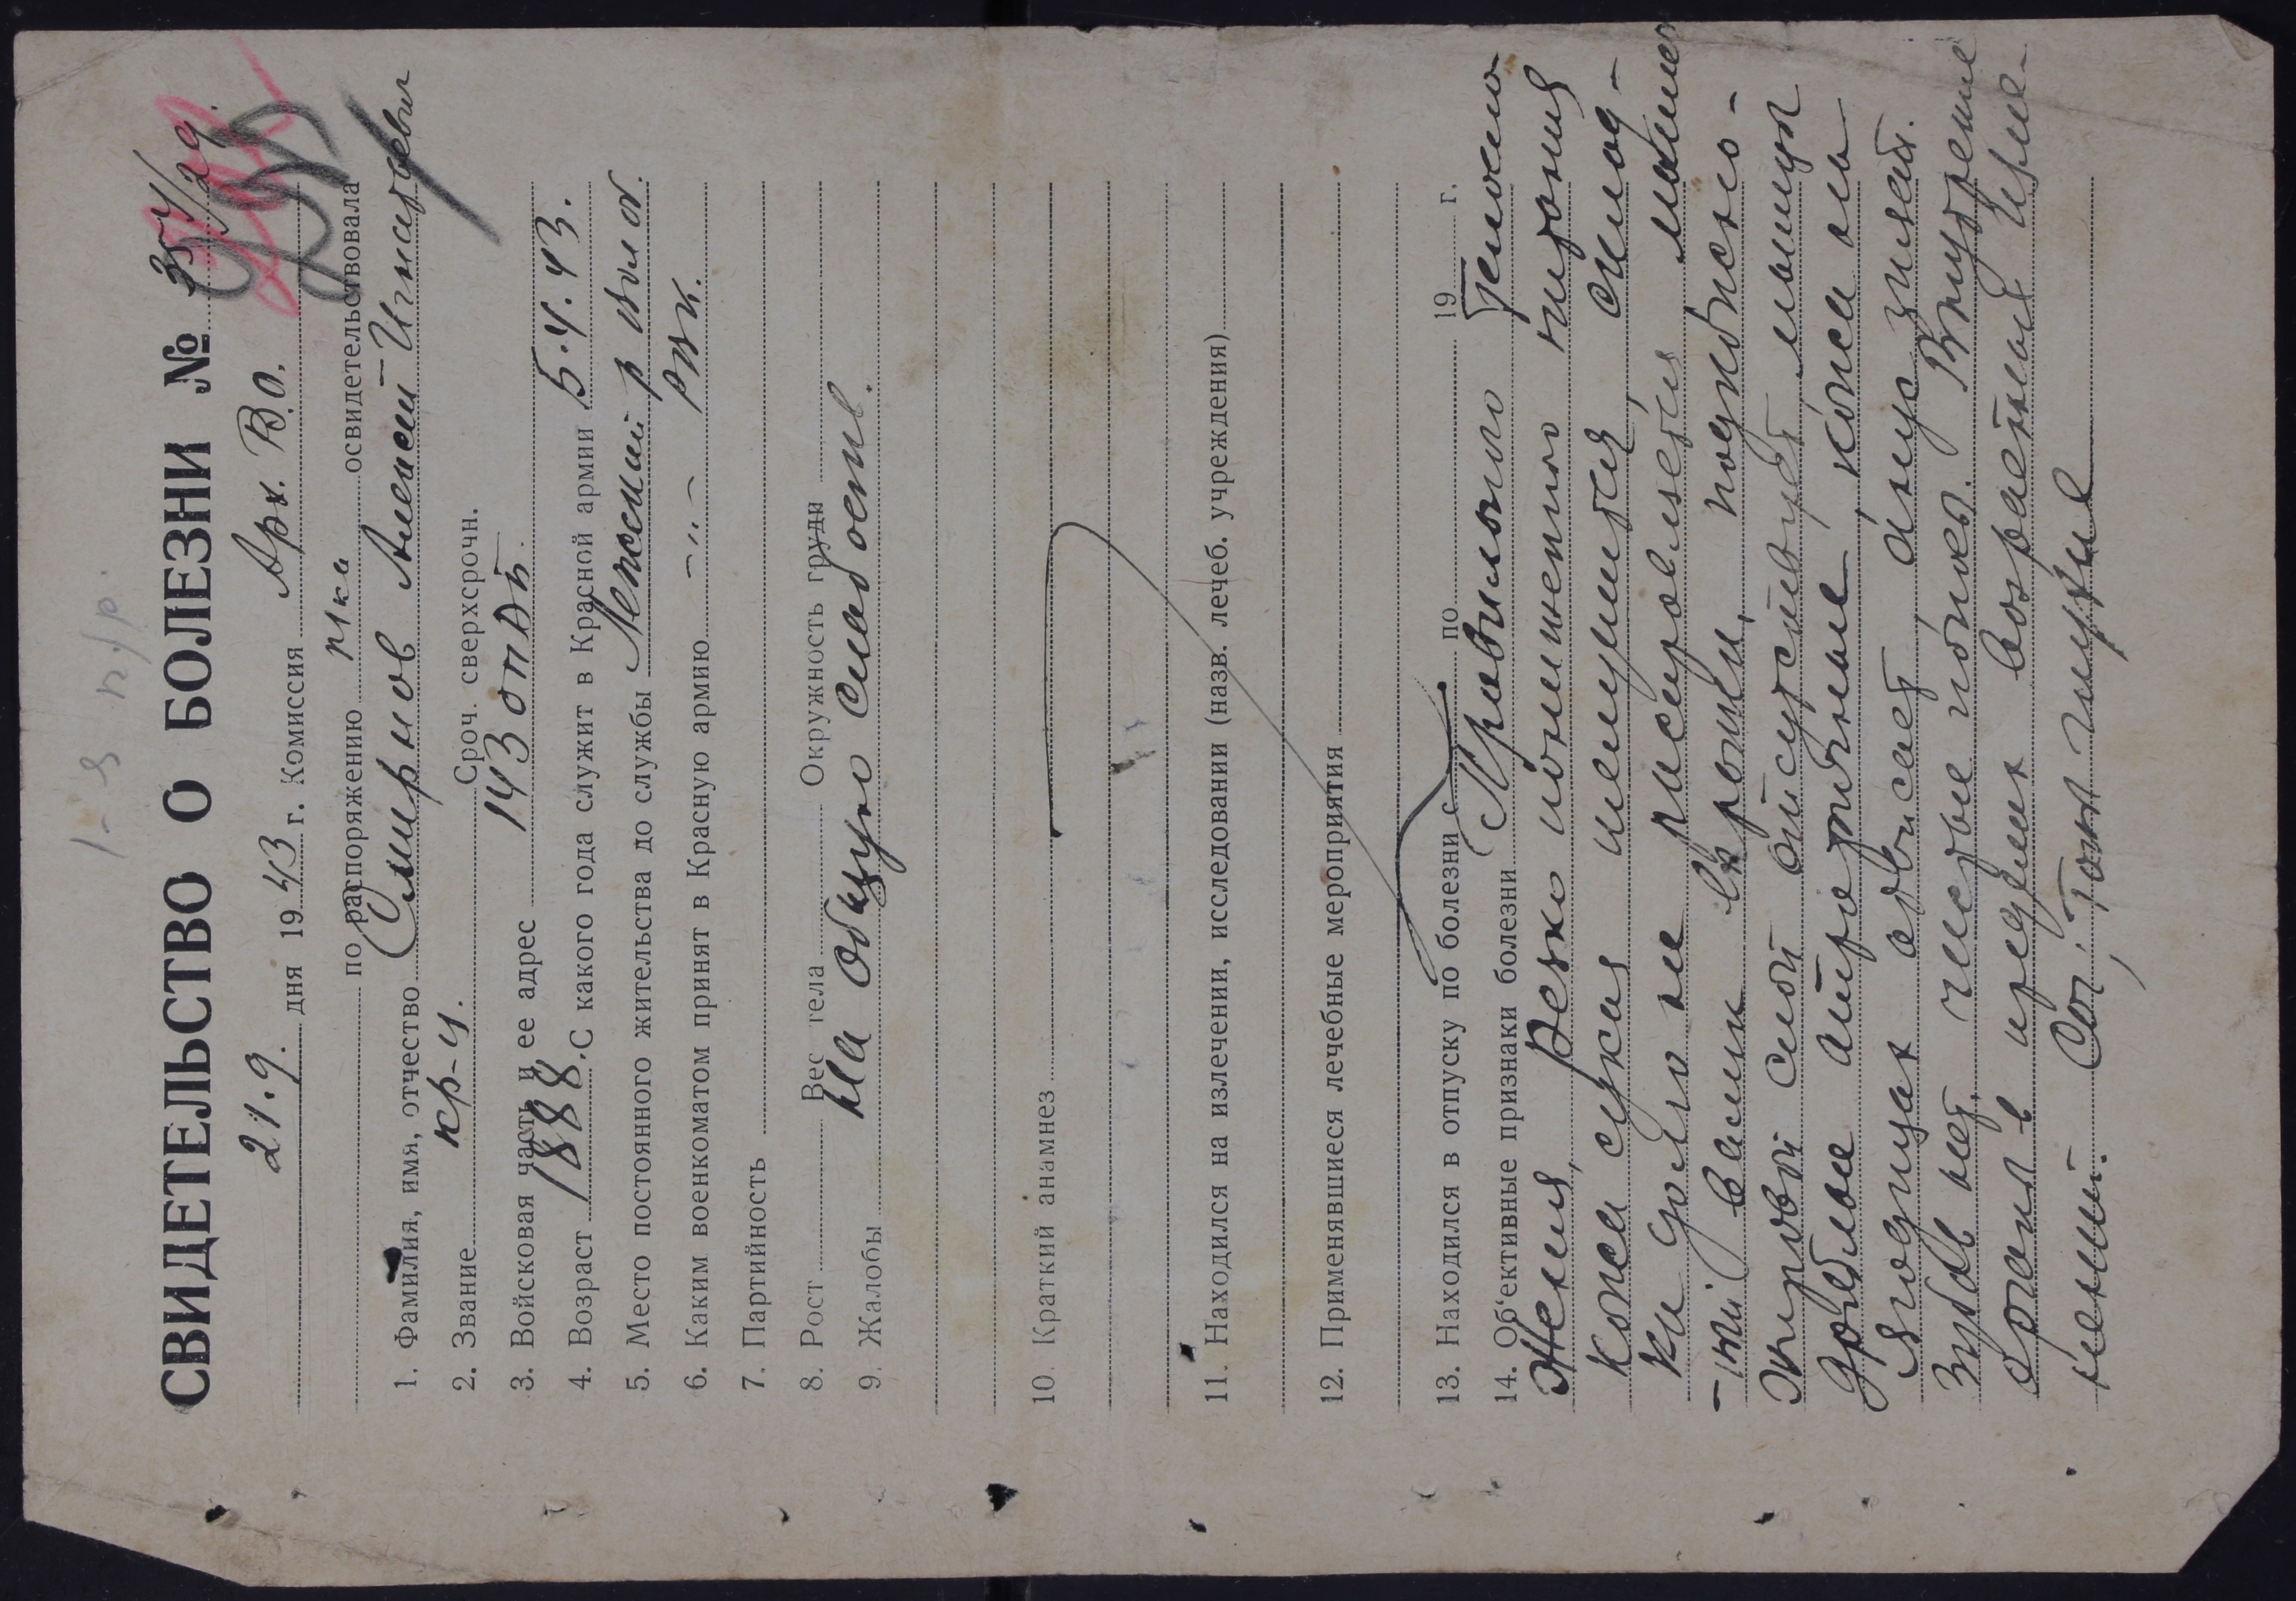 1-я п/р.
СВИДЕТЕЛЬСТВО О БОЛЕЗНИ №
21.9. дня 1943 г. Комиссия Арх. В.О.
по распоряжению нка освидетельствовала
1. Фамилия, имя, отчество Смирнов Алексей Игнатьевич
2. Звание кр-ц. Сроч. сверхсрочн.
3. Войсковая часть и ее адрес 143
4. Возраст 1888. С какого года служит в Красной армии 5.4.43.
5. Место постоянного жительства до службы Ленский р
6. Каким военкоматом принят в Красную армию -"- РВК.
7. Партийность
8. Рост Вес тела Окружность груди
9. Жалобы На общую слабость.
10. Краткий анамнез
11. Находился на излечении, исследовании (назв. лечеб. учреждения)
12. Применявшиеся лечебные мероприятия
13. Находился в отпуску по болезни с по 19 г.
14. Об'ективные признаки болезни Правильного телосло
жения, резко пониженного питания
кожа сухая шелушится, склад-
ки долго не расправляются,
подкожно-
жировой слой отсутствует, мышцы
дряблые атрофичные, кожа на
ягодицах обвисает, анус зияет.
Зубов нет, Внутрение
органы в пределах возрастных изме-
нений. тоны глухие